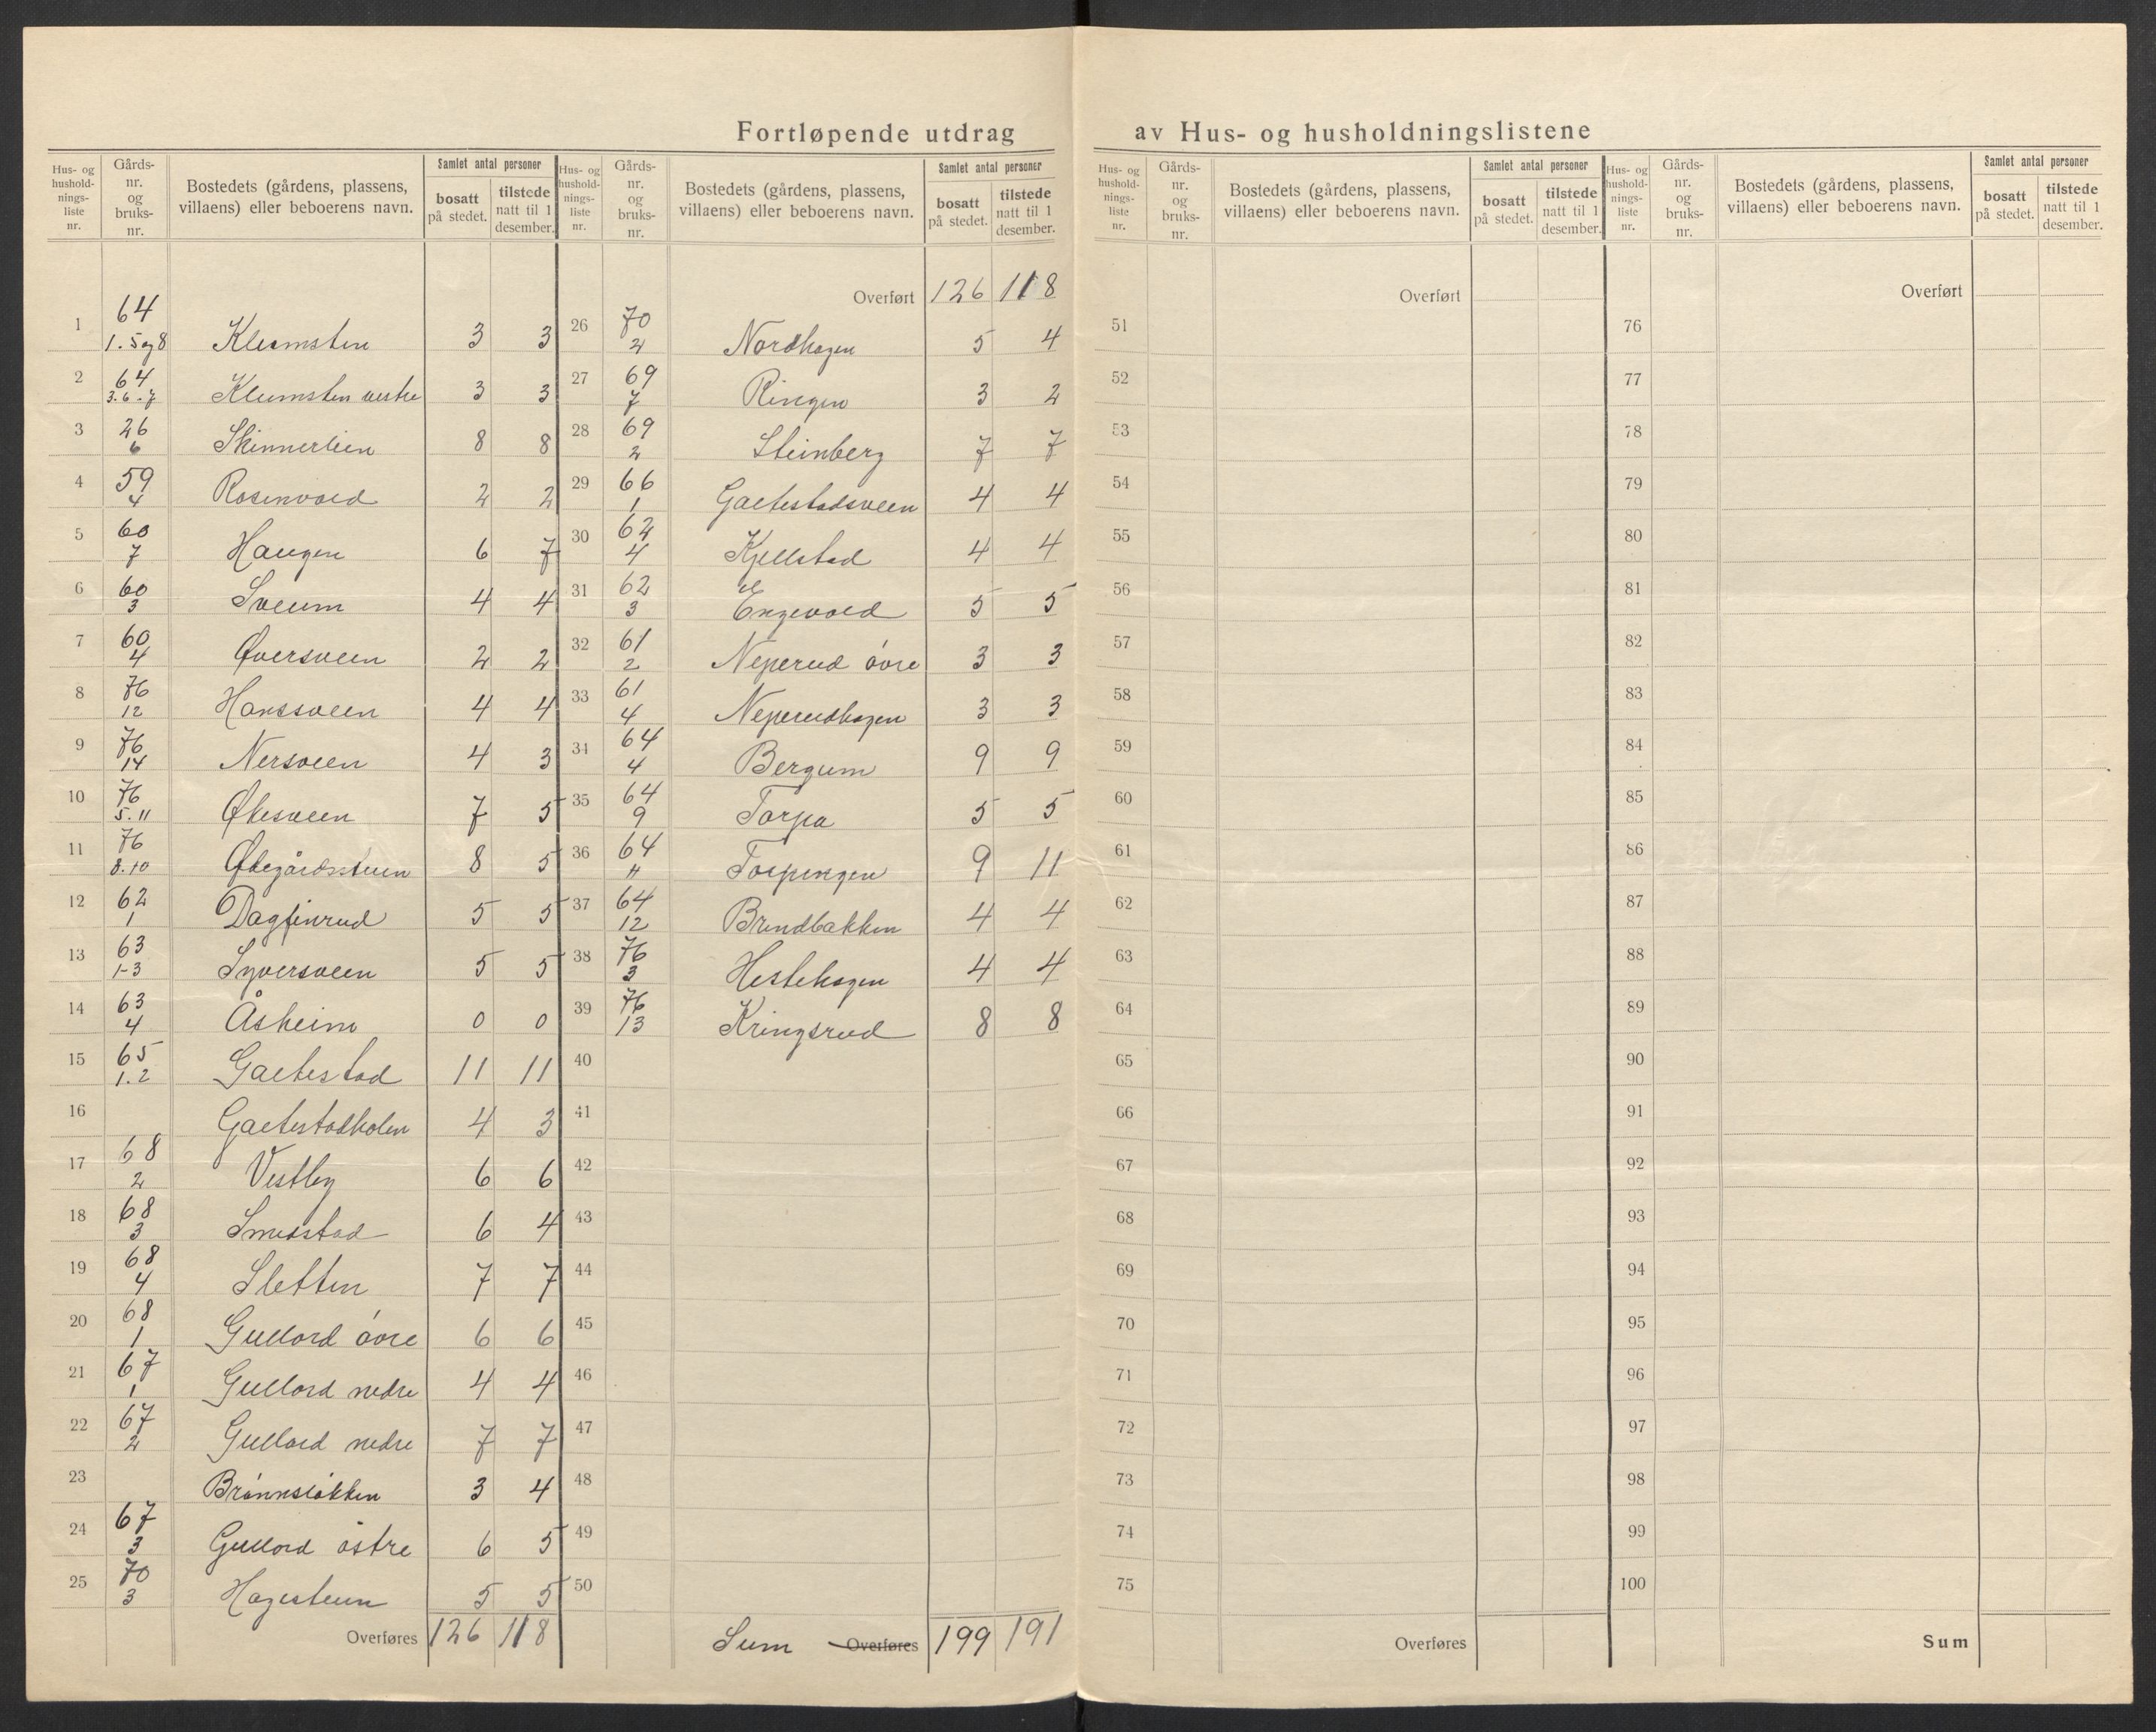 Fortløpende utdrag av Hus- og husholdningslistene
Hus- og hushold- nings- liste nr. | Gårds- nr. og bruks- nr. | Bostedets (gårdens, plassens, villaens) eller beboerens navn. | Samlet antal personer | bosatt på stedet. | tilstede natt til 1 desember.
1 64 1. 5 og 8 Klumsten 3 3
2 64 3. 6 - 7 Klumsten vestre 3 3
3 26 6 Skinnerlien 8 8
4 59 4 Rosenvold 2 2
5 60 7 Haugen 6 7
6 60 3 Sveum 4 4
7 60 4 Øversveen 2 2
8 76 12 Hanssveen 4 4
9 76 14 Nersveen 4 3
10 76 5. 11 Økesveen 7 5
11 76 8. 10 Ødegårdsstuen 8 5
12 62 1 Dagfinrud 5 5
13 63 1-3 Syversveen 5 5
14 63 4 Åsheim 0 0
15 65 1. 2 Galtestad 11 11
16 Galtestadholen 4 3
17 68 2 Vestby 6 6
18 68 3 Smedstad 6 4
19 68 4 Sletten 7 7
20 68 1 Gullord övre 6 6
21 67 1 Gullord nedre 4 4
22 67 2 Gullord nedre 7 7
23 Brönnslökken 3 4
24 67 3 Gullord östre 6 5
25 70 3 Hagestuen 5 5
Overføres 126 118
Hus- og hushold- nings- liste nr. | Gårds- nr. og bruks- nr. | Bostedets (gårdens, plassens, villaens) eller beboerens navn. | Samlet antal personer | bosatt på stedet. | tilstede natt til 1 desember.
Overført 126 118
26 70 2 Nordhagen 5 4
27 69 7 Ringen 3 2
28 69 2 Steinberg 7 7
29 66 1 Galtestadsveen 4 4
30 62 4 Kjellstad 4 4
31 62 3 Engevold 5 5
32 61 2 Neperud övre 3 3
33 61 4 Neperudhagen 3 3
34 64 4 Bergum 9 9
35 64 9 Torpa 5 5
36 64 11 Torpengen 9 11
37 64 12 Brendbakken 4 4
38 76 3 Hestehagen 4 4
39 76 13 Kringsrud 8 8
40
41
42
43
44
45
46
47
48
49
50
Sum Overføres 199 191
Hus- og hushold- nings- liste nr. | Gårds- nr. og bruks- nr. | Bostedets (gårdens, plassens, villaens) eller beboerens navn. | Samlet antal personer | bosatt på stedet. | tilstede natt til 1 desember.
Overført
51
52
53
54
55
56
57
58
59
60
61
62
63
64
65
66
67
68
69
70
71
72
73
74
75
Overføres
Hus- og hushold- nings- liste nr. | Gårds- nr. og bruks- nr. | Bostedets (gårdens, plassens, villaens) eller beboerens navn. | Samlet antal personer | bosatt på stedet. | tilstede natt til 1 desember.
Overført
76
77
78
79
80
81
82
83
84
85
86
87
88
89
90
91
92
93
94
95
96
97
98
99
100
Sum